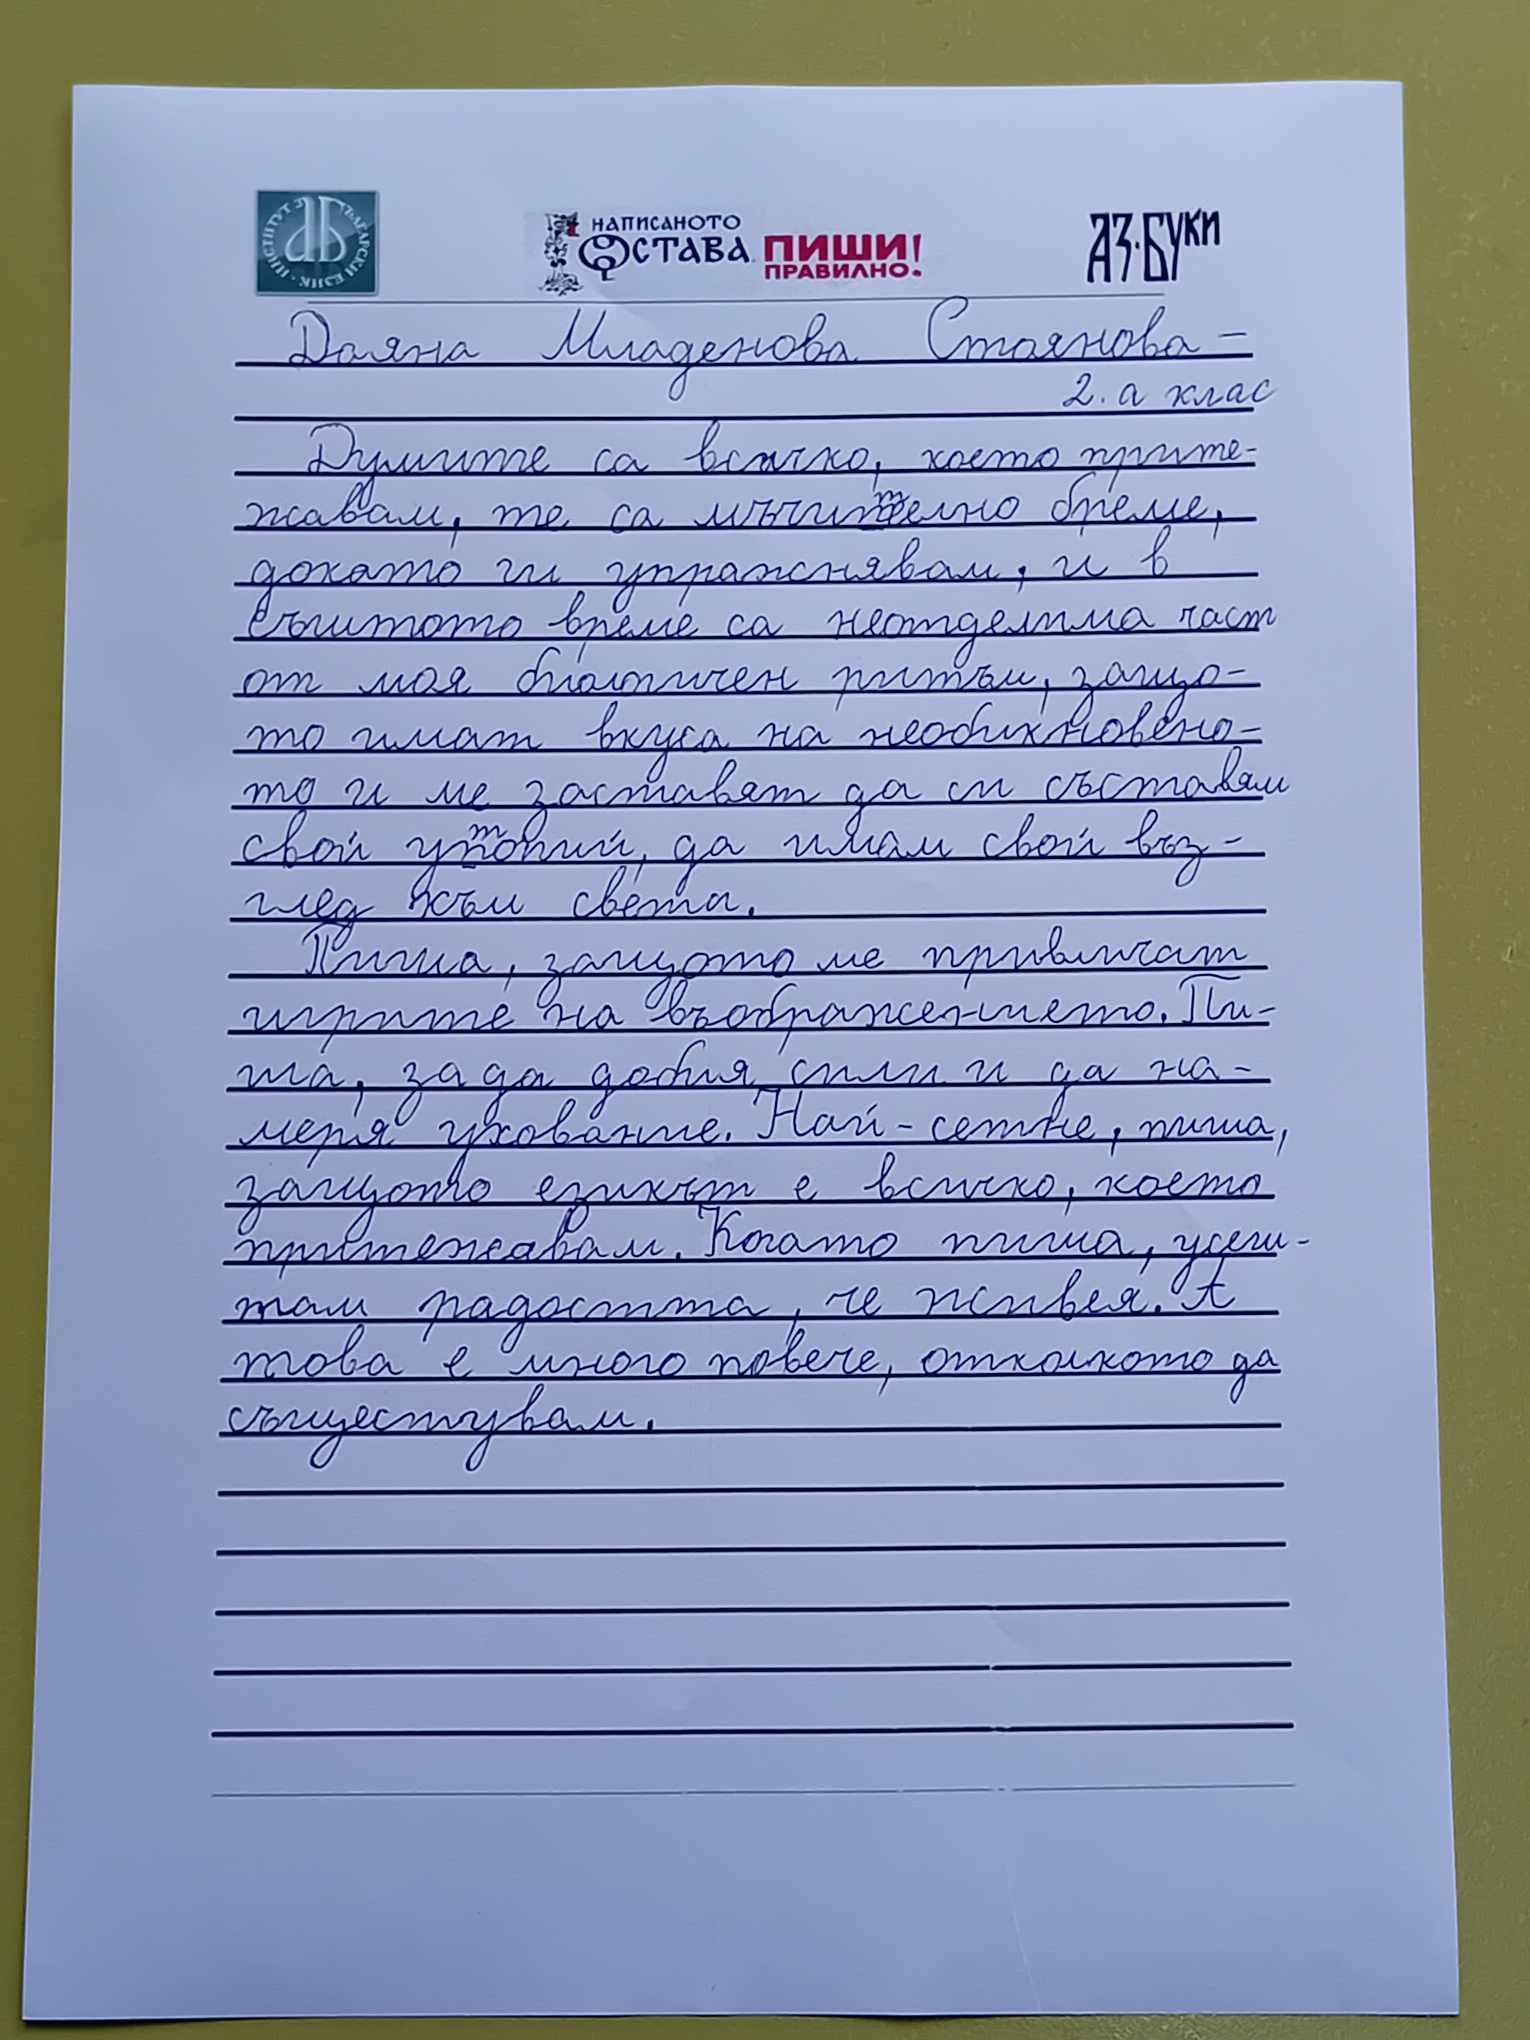 ИНСТИТУТ ЗА БЪЛГАРСКИ ЕЗИК
НАПИСАНОТО
ОСТАВА. ПИШИ!
ПРАВИЛНО.
АЗ·БУКИ
Даяна Младенова Стоянова –
2. а клас
Думите са всичко, което прите-
жавам, те са мъчително бреме,
докато ги упражнявам, и в
същтото време са неотделима част
от моя биологичен ритъм, защо-
то имат вкуса на необикновено-
то и ме заставят да си съставям
свой утопии, да имам свой въз-
глед към света.
Пиша, защото ме привличат
игрите на въображението. Пи-
ша, за да добия сили и да на-
меря ухование. Най-сетне, пиша,
защото езикът е всичко, което
притежавам. Когато пиша, усеш-
там радостта, че живея. А
това е много повече, отколкото да
съществувам.